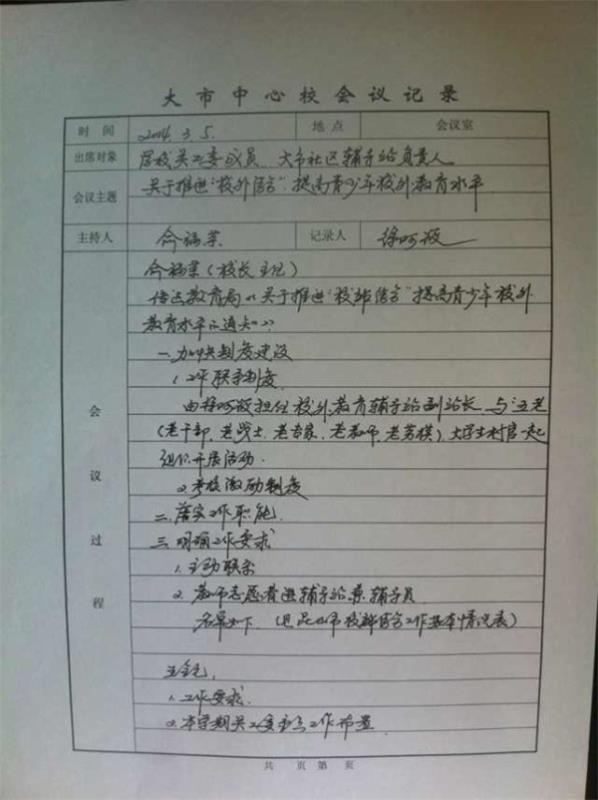 大市中心校会议记录
时间 2014.3.5. 地点 会议室
出席对象 学校关工委成员、大市社区辅导站负责人
会议主题 关于推进"校外结合",提高青少年校外教育水平.
主持人 记录人
会议过程
(校长主任)
传达教育局《关于推进"校外结合"提高青少年校外
教育水平的通知》:
一.加快制度建设
1.工作联系制度.
担任校外教育辅导站副站长,与"五老"
(老干部、老战士、老专家、老教师、老劳模),大学生村官一起
组织开展活动.
2.考核激励制度
二.落实工作职能.
三.明确工作要求
1.主动联系
2.教师志愿者进辅导站兼辅导员
名单如下.
1.工作要求.
2.本学期关工委重点工作布置
共 页 第 页